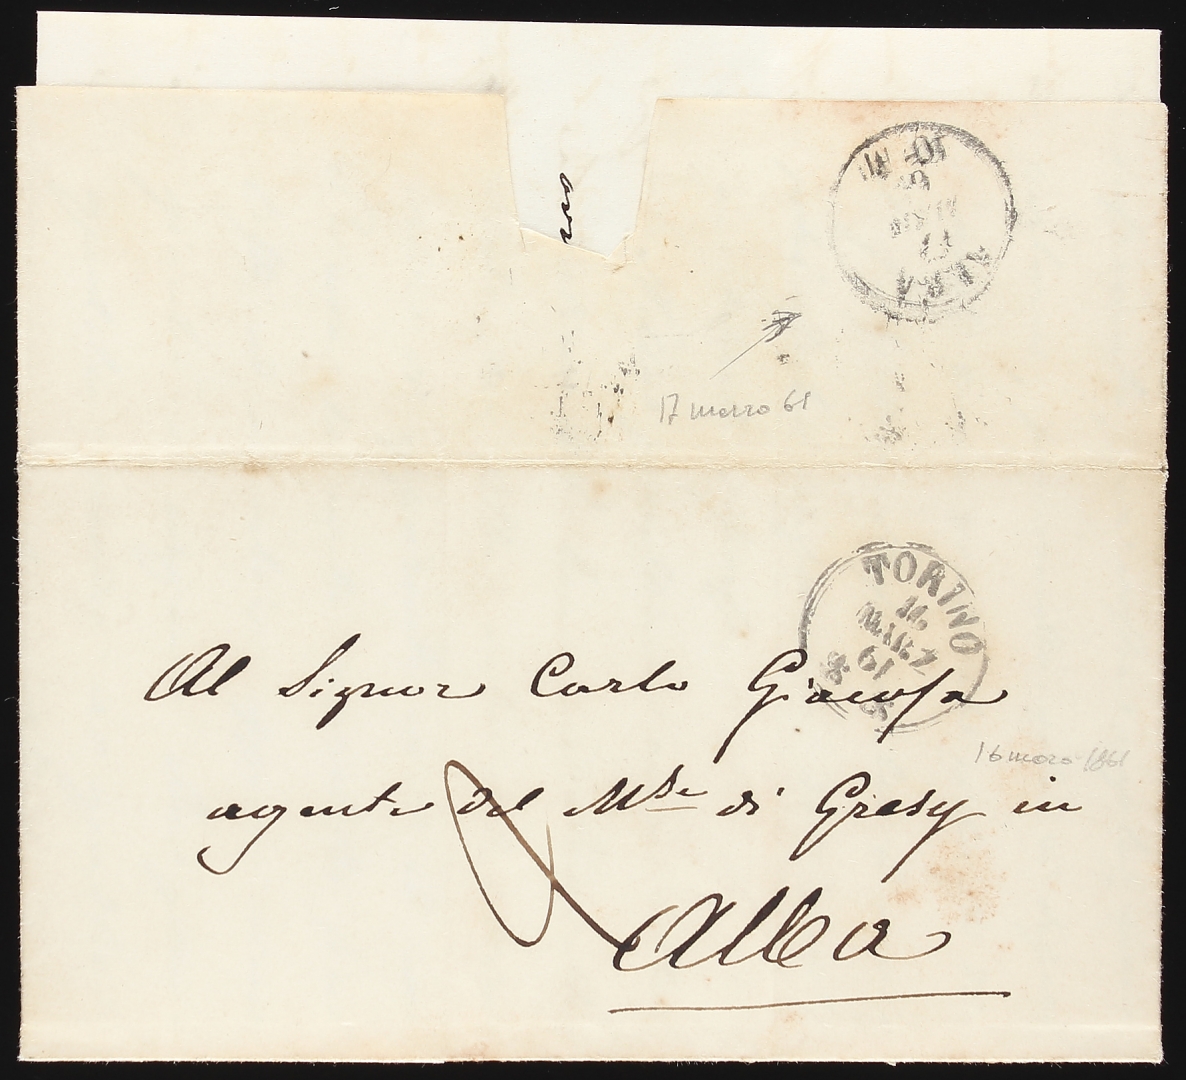 ALBA
17
61
10 M
17 marzo 61
TORINO
16
MARZ
61
8 S
Al Signor Carlo Giacosa
agente del M.se di Gresy in
Alba
16 marzo 1861